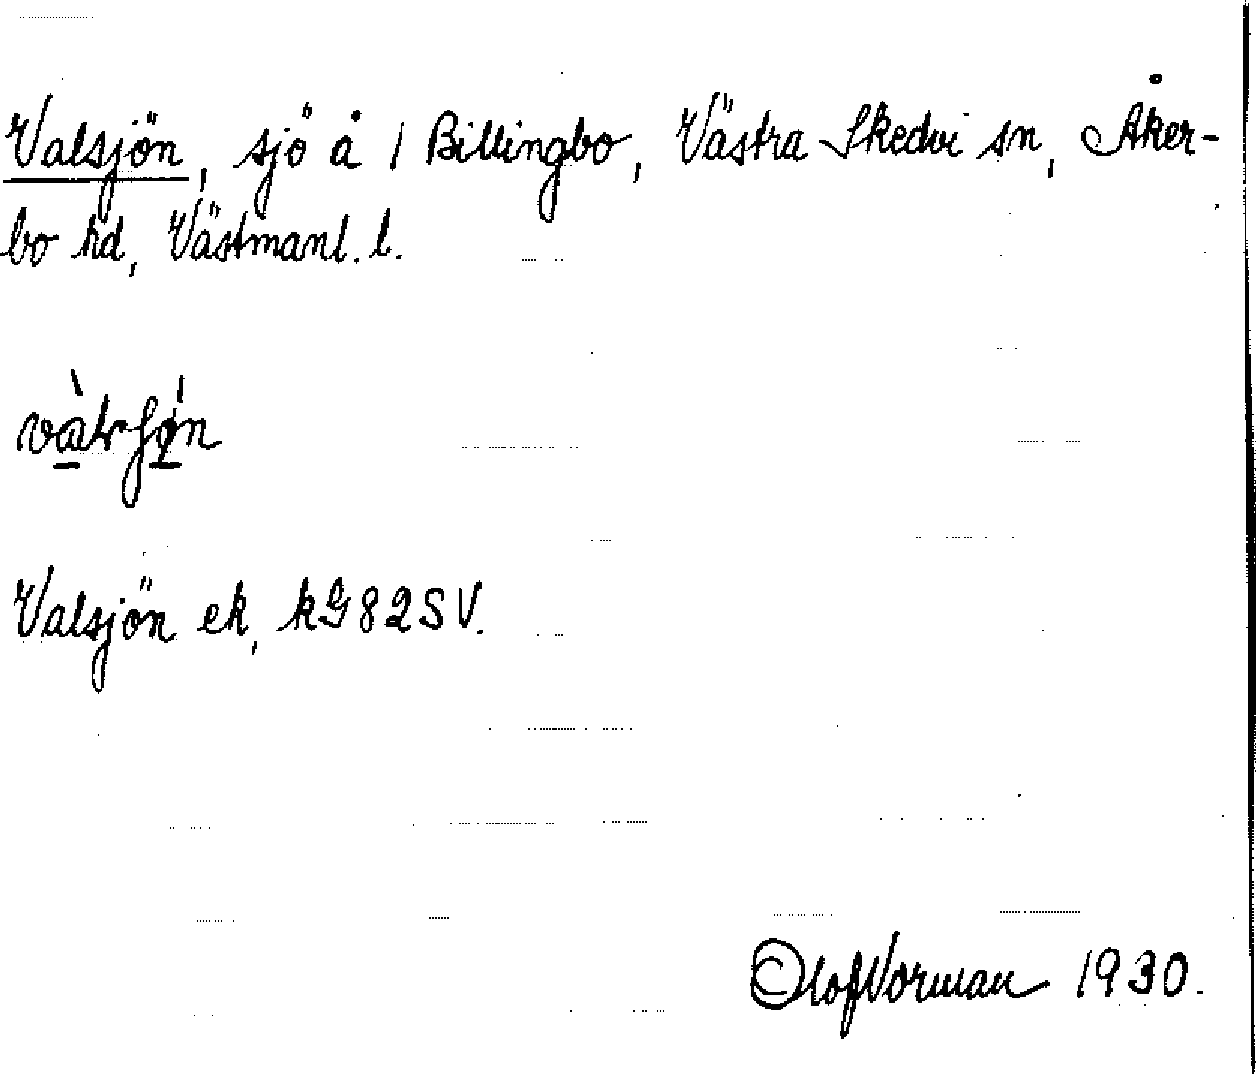 Valsjön, sjö å 1 Billingbo, Västra Skedvi sn, Åker-
bo hd, Västmanl. l.
Valsjön ek, kG82SV.
Olof Vorman 1930.